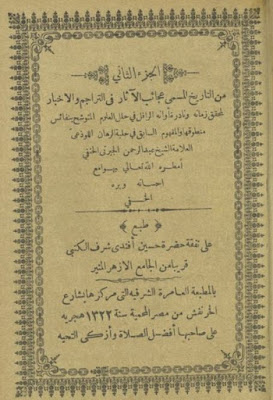 الجزء الثاني
من التاريخ المسمى عجائب الآثار فى التراجم والاخبار
لمحقق زمانه ونادرة أوانه الرافل فى حلل العلوم المتوشح بنفائس
منطوقها والمفهوم السابق فى حلبة الرهان اللوذعى
العلامة الشيخ عبد الرحمن الجبرتى الحنفى
أمطره الله تعالى بهوامع
احسانه وبره
الخفى
﴿ طبع ﴾
على نفقة حضرة حسين أفندى شرف الكتبى
قريبا من الجامع الازهر المنير
بالمطبعة العامرة الشرفيه التى مركزها بشارع
الخرنفش من مصر المحمية سنة ١٣٢٢ هجريه
على صاحبها أفضل الصلاة وأزكى التحيه